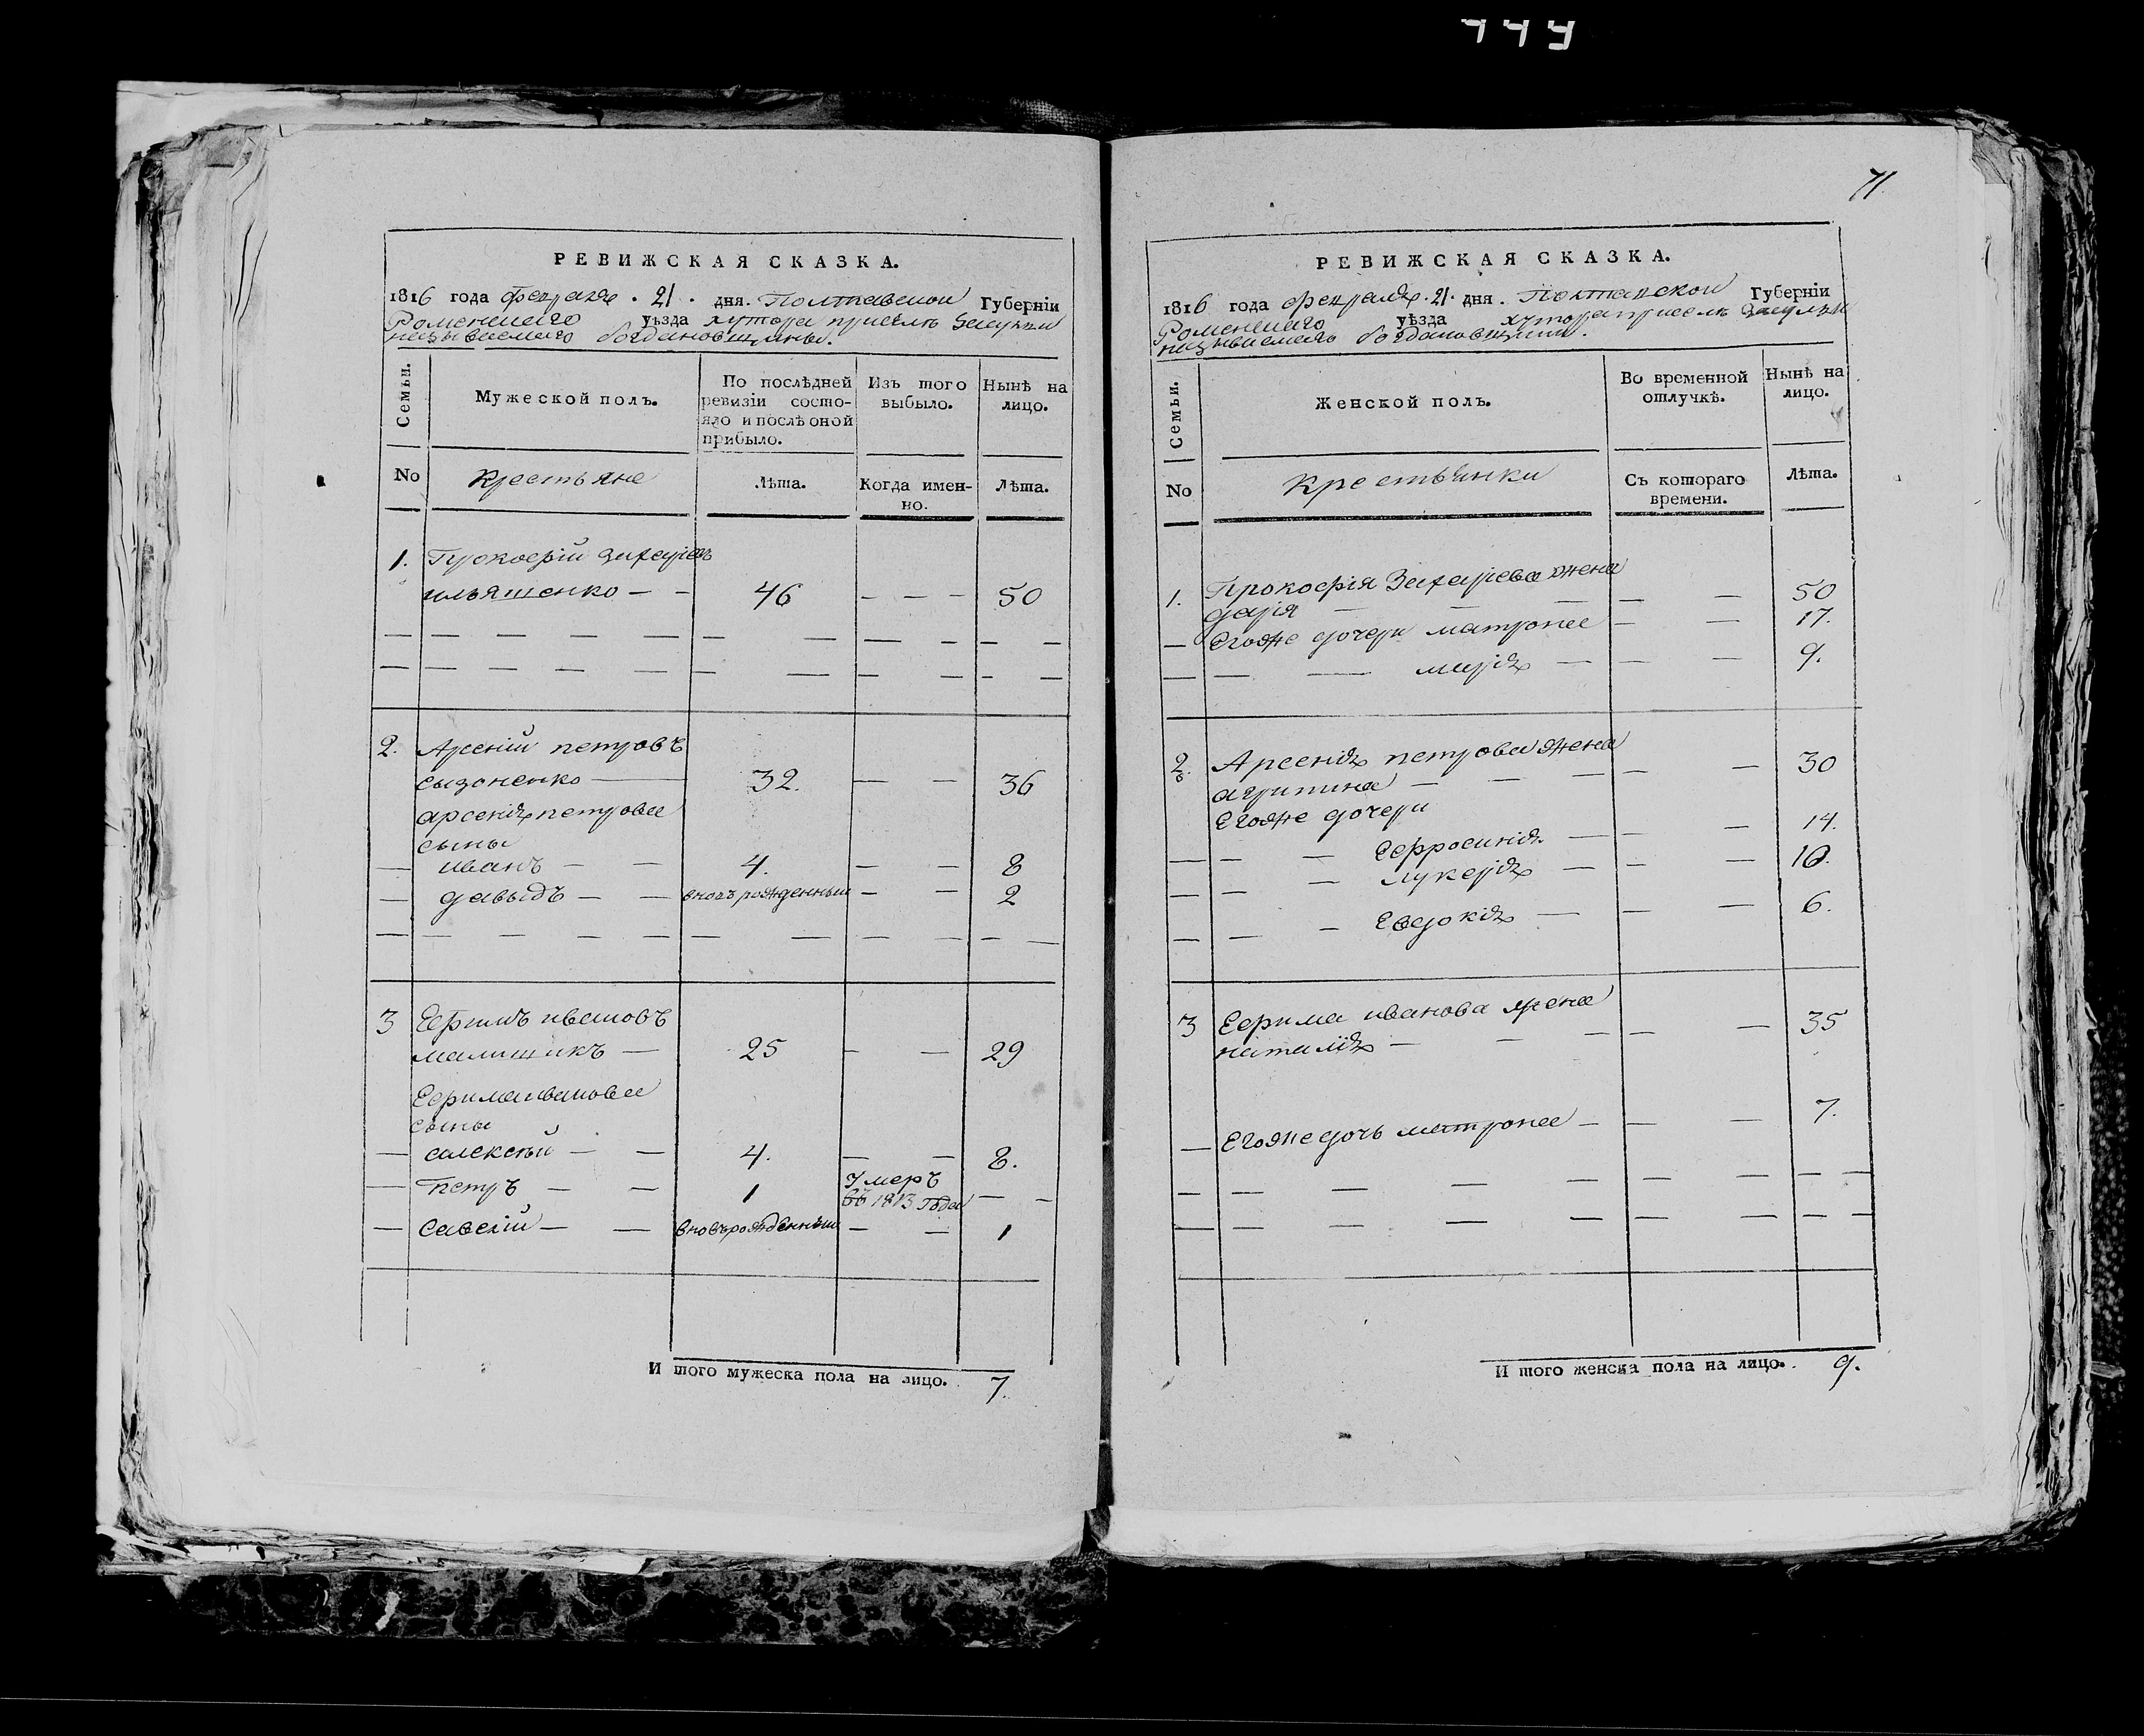 444
РЕВИЖСКАЯ СКАЗКА.
1816 года февраля . 21 . дня . Полтавской Губернїи
Роменского уѣзда хутора при
называемаго богдановщины.
Семьи.
Мужеской полъ.
По послѣдней ревизїи состо-
яло и послѣ оной
прибыло.
Изъ того
выбыло.
Нынѣ на
лицо.
No
Крестьяне
Лѣта.
Когда имен-
но.
Лѣта.
1. Прокофїй Захарїевъ
ильяшенко — — 46 — — — 50
2. Арсенїй петровъ
сызоненко — 32. — — 36
арсенїя петрова
сыны
— иванъ — — 4. — — 8
— давыдъ — — вновь рожденный — — 2
3 Ефимъ ивановъ
малишикъ — 25 — — 29
Ефима иванова
сыны
— алексѣй — — 4. — — 8.
— Петръ — — 1 Умеръ
въ 1813 года — —
— Савелїй — — вновърожденный — — 1
И того мужеска пола на лицо. 7.
71
РЕВИЖСКАЯ СКАЗКА.
1816 года февраля . 21 . дня . Полтавской Губернїи
Роменского уѣзда хутора при
называемаго богдановщины.
Семьи.
Женской полъ.
Во временной
отлучкѣ.
Нынѣ на
лицо.
No
Крестьянки
Съ котораго
времени.
Лѣта.
1. Прокофїя Захарїева жена
дарїя — — — — — 50
— Егоже дочери матрона — — 17.
— — — марїя — — — 9.
2. Арсенїя петрова жена
агрипина — — — — — 30
Егоже дочери
— — — Еффросинїя — — — 14.
— — — лукерїя — — — 10.
— — — Евдокїя — — — 6.
3 Ефима иванова жена
наталїя — — — — — 35
— Егоже дочь матрона — — — 7.
И того женска пола на лицо. 9.